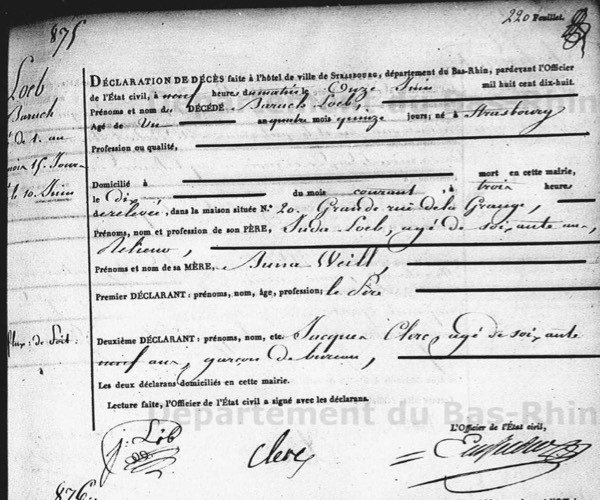 875
220 Feuillet.
Loeb
Baruch
de 1. an
mois 15. Jours
le 10. Juin
DÉCLARATION DE DÉCÈS faite à l'hôtel de ville de STRASBOURG, département du Bas-Rhin, pardevant l'Officier
de l'État civil, à neuf heures du matin le Onze Juin mil huit cent dix-huit.
Prénoms et nom du DÉCÉDÉ Baruch Loeb,
Agé de Un an quatre mois quinze jours; né à Strasbourg
Profession ou qualité,
Domicilié à mort en cette mairie,
le Dix du mois courant, à trois heures
de relevée, dans la maison située N.º 20. Grande rue de la Grange,
Prénoms, nom et profession de son PÈRE, Juda Loeb, agé de soixante ans,
Prénoms et nom de sa MÈRE, Anna Weill,
Premier DÉCLARANT: prénoms, nom, âge, profession; le Père
Deuxième DÉCLARANT: prénoms, nom, etc. Jacques Clerc, agé de soixante
neuf ans, garçon de bureau,
Les deux déclarans domiciliés en cette mairie.
Lecture faite, l'Officier de l'État civil a signé avec les déclarans.
Département du Bas-Rhin
L'Officier de l'État civil,
j: Löb
Clerc
876